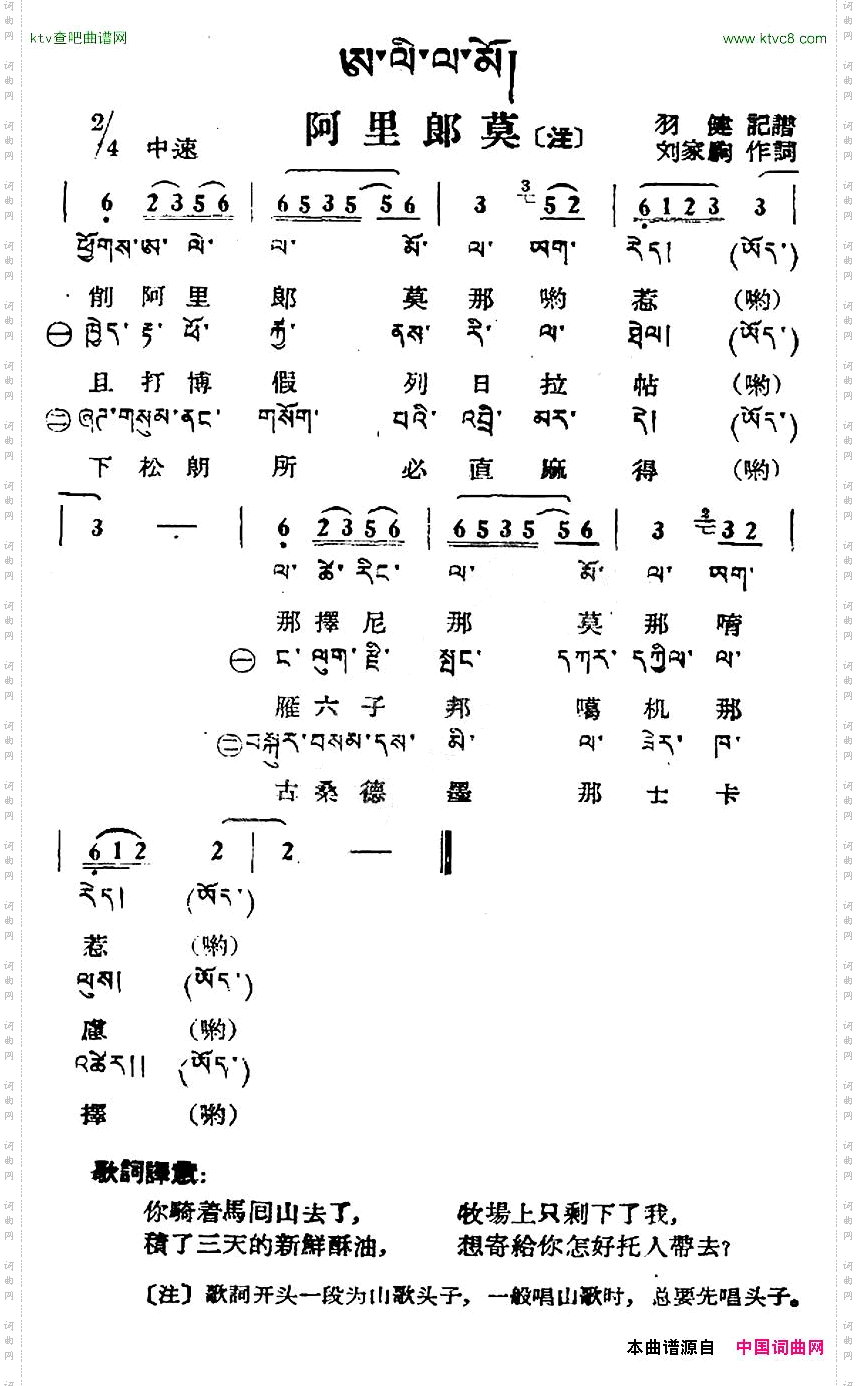 ktv查吧曲谱网 www.ktvc8.com
ཨ་ལི་ལ་མོ།
阿里郎莫〔注〕
2/4 中速 羽健 記譜
刘家駒 作詞
6 2 3 5 6 | 6 5 3 5 5 6 | 3 3 5 2 | 6 1 2 3 3 |
ཕྱོགས་ཨ་ ལེ་ ལ་ མོ་ ལ་ ཨག་ རེད། (ཨོད་)
削 阿 里 郎 莫 那 喲 惹 (喲)
㊀ ཁྱེད་ རྟ་ ཕོ་ རྐྱ་ ནས་ རི་ ལ་ ཐེལ། (ཨོད་)
且 打 博 假 列 日 拉 帖 (喲)
㊁ ཞག་གསུམ་ནང་ གསོག་ པའི་ འབྲི་ མར་ དེ། (ཨོད་)
下 松 朗 所 必 直 麻 得 (喲)
3 — | 6 2 3 5 6 | 6 5 3 5 5 6 | 3 2 3 2 |
ལ་ ཚེ་ རིང་ ལ་ མོ་ ལ་ ཨག་
那 擇 尼 那 莫 那 唷
㊀ ང་ ལུག་ རྫི་ སྤང་ དཀར་ དཀྱིལ་ ལ་
雁 六 子 邦 噶 机 那
㊁ བསྐུར་བསམ་དས་ མི་ ལ་ ཟེར་ ཁ་
古 桑 德 墨 那 士 卡
6 1 2 2 | 2 —
རེད། (ཨོད་)
惹 (喲)
ལུས། (ཨོད་)
慮 (喲)
འཚེར།། (ཨོད་)
擇 (喲)
歌詞譯意：
你騎着馬回山去了， 牧場上只剩下了我，
積了三天的新鮮酥油， 想寄給你怎好托人帶去？
〔注〕歌詞开头一段为山歌头子，一般唱山歌时，总要先唱头子。
本曲谱源自 中国词曲网